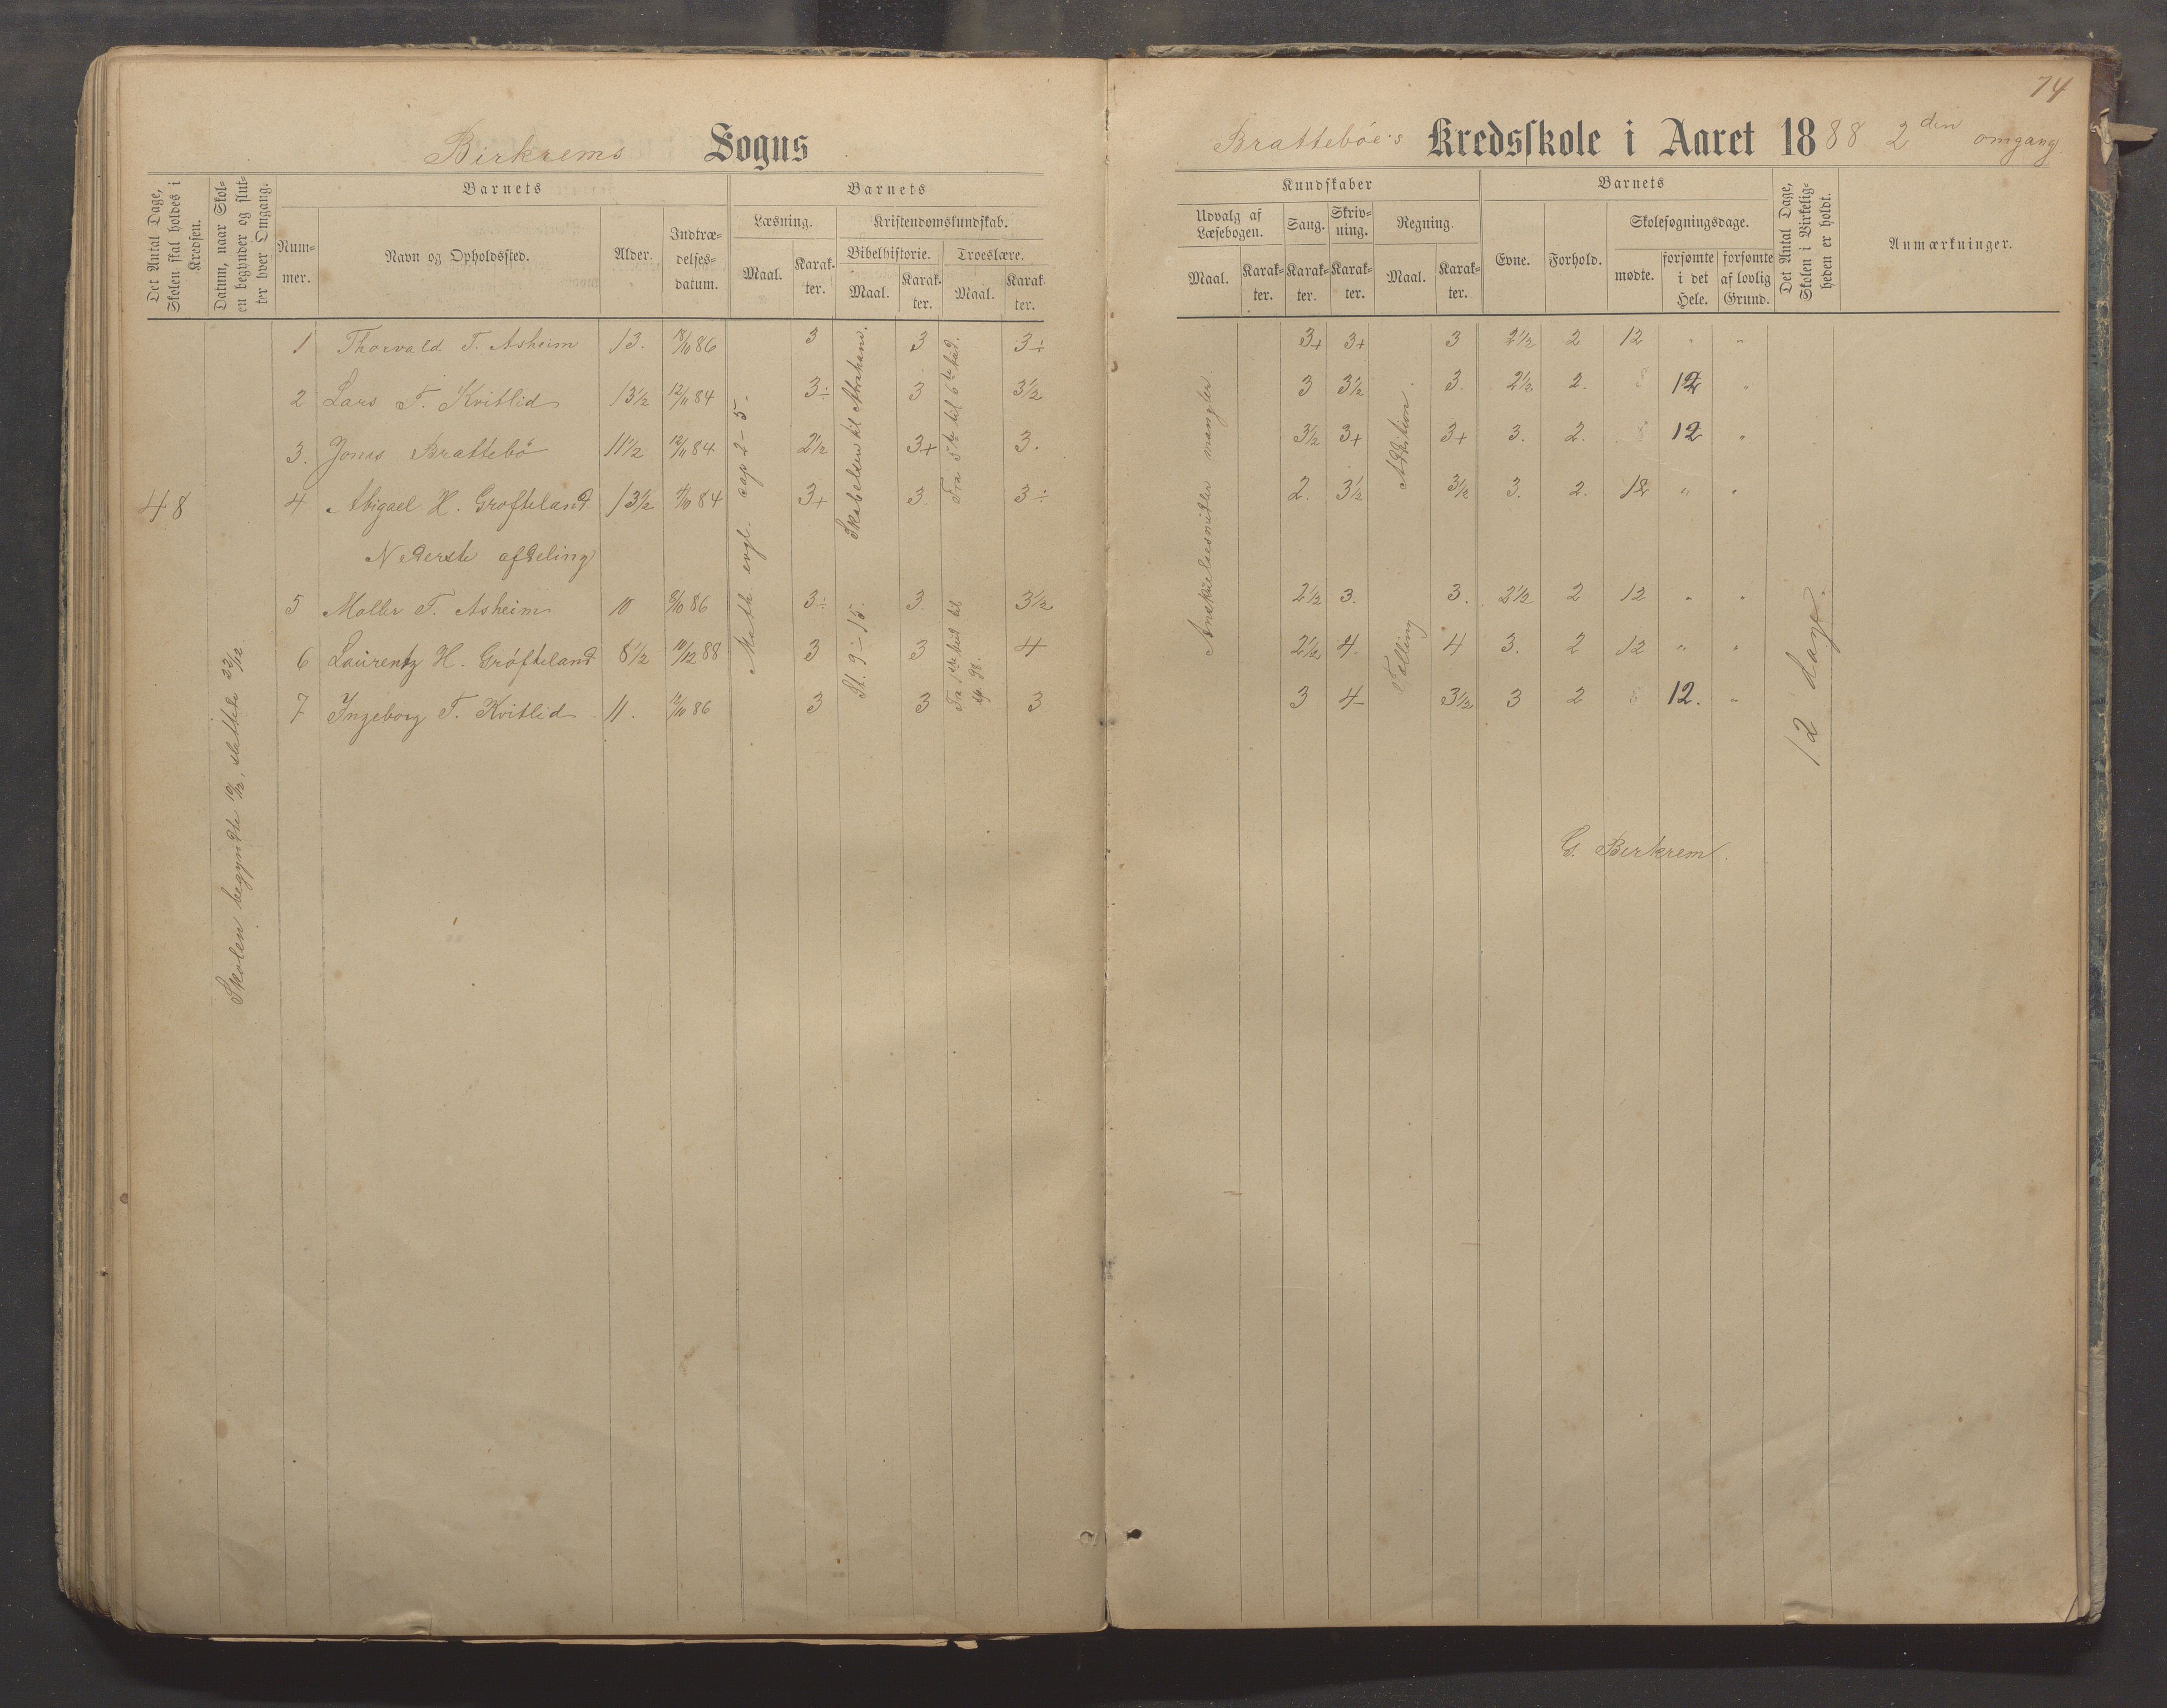 74
Birkrems Sogns
Brattebøe's Kredsskole i Aaret 1888 2den omgang.
Det Antal Dage, Skolen skal holdes i Kredsen.
Datum, naar Skolen begynder og slutter hver Omgang.
Barnets
Nummer.
Navn og Opholdssted.
Alder.
Indtrædelsesdatum.
Barnets
Læsning.
Maal.
Karakter.
Kristendomskundskab.
Bibelhistorie.
Maal.
Karakter.
Troeslære.
Maal.
Karakter.
Kundskaber
Udvalg af Læsebogen.
Maal.
Karakter.
Sang.
Karakter.
Skrivning.
Karakter.
Regning.
Maal.
Karakter.
Barnets
Evne.
Forhold.
Skolesøgningsdage.
mødte.
forsømte i det Hele.
forsømte af lovlig Grund.
Det Antal Dage, Skolen i Virkeligheden er holdt.
Anmærkninger.
48
Skolen begyndte 10/12, sluttede 22/12
Math evgl. cap 2-5.
Skabelsen til Abraham.
Fra 5te til 6te bud.
Anskuelsesmidler mangler
Addition
1 Thorvald T. Asheim 13. 3 3 3÷ 3+ 3+ 3 2½ 2 12 " "
2 Lars T. Kvitlid 13½ 12/11 84 3÷ 3 3½ 3 3½ 3. 2½ 2. 12 "
3. Jonas Brattebö 11½ 12/11 84 2½ 3+ 3. 3½ 3+ 3+ 3. 2. 12 "
4 Abigael H. Grøfteland 13½ 3+ 3. 3÷ 2. 3½ 3½ 3. 2. 12 " "
Nederste afdeling
St. 9-15.
Tælling
12 dage.
5 Maller T. Asheim 10 3÷ 3. 3½ 2½ 3. 3. 2½ 2 12 " "
6 Laurentz H. Grøfteland 8½ 10/12 88 3 3 4 2½ 4 4 3. 2 12 " "
7 Ingeborg T. Kvitlid 11. 3 3 3 3 4 3½ 3 2 12. "
G. Birkrem.